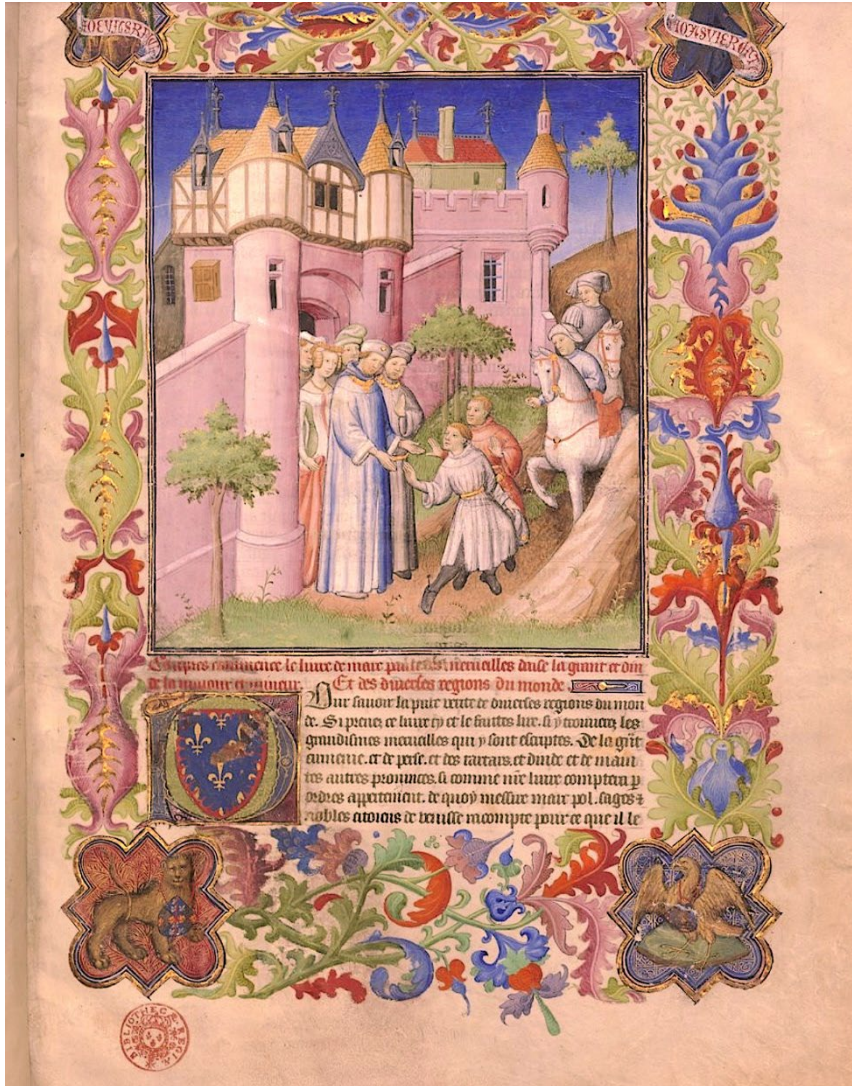 commence le liure de marc paul merueilles daise la grant et din
de la maiour et mineur. Et des diuerses regions du monde
Pour sauoir la pure verite de diuerses regions du mon
de. Si prenez ce liure cy et le faittes lire. si y trouuerez les
grandismes merueilles qui y sont escriptes. De la gñt
ermenie. et de perse. et des tartars. et dinde et de main
tes autres prouinces. si comme nr̃e liure comptera p
ordres appertement. de quoy messire marc pol. sages ⁊
nobles citoiens de venisse racompte pour ce que il le
BIBLIOTHECÆ REGIÆ